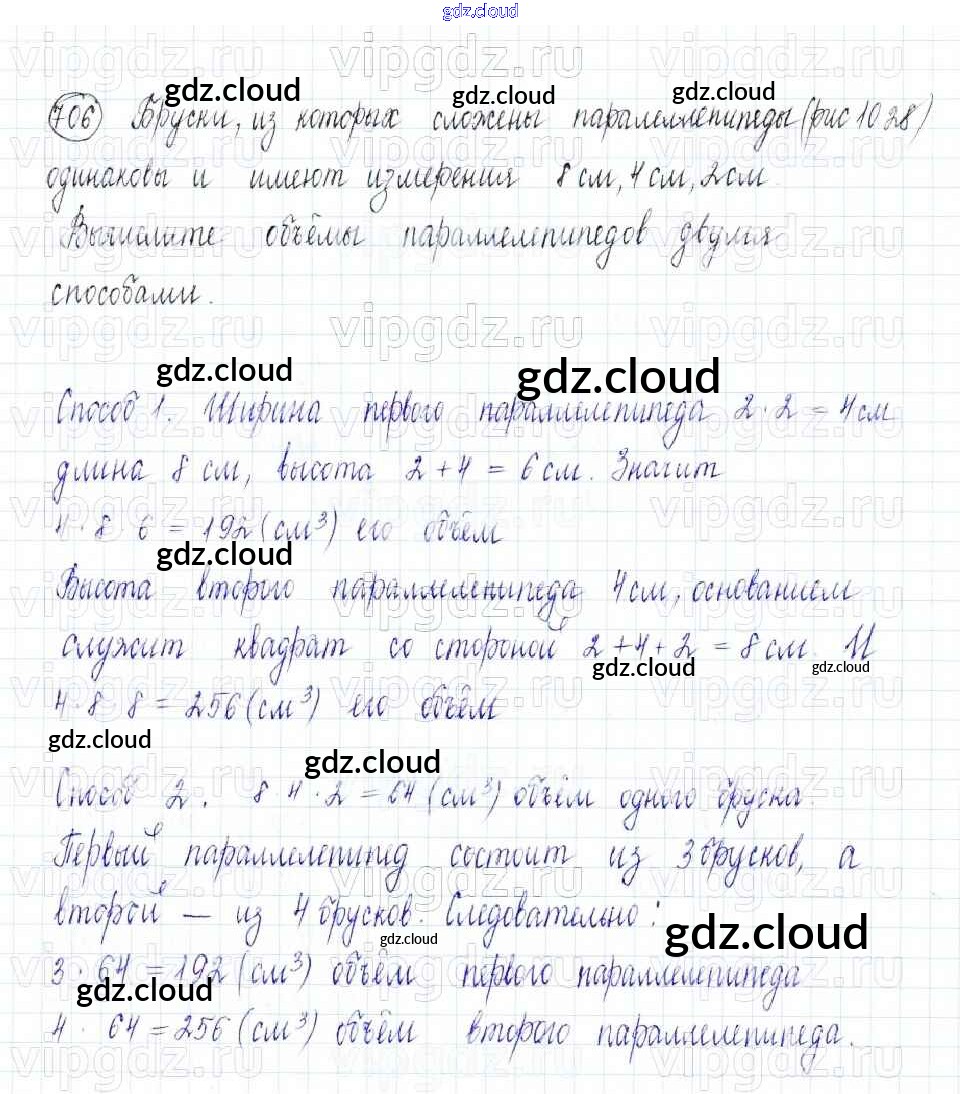 gdz.cloud
706 Бруски, из которых сложены параллелепипеды (рис 102 8)
одинаковы и имеют измерения 8 см, 4 см, 2 см
Вычислите объёмы параллелепипедов двумя
способами.
Способ 1. Ширина первого параллелепипеда 2 · 2 = 4 см
длина 8 см, высота 2 + 4 = 6 см. Значит
4 · 8 6 = 192 (см³) его объём
Высота второго параллелепипеда 4 см, основанием
служит квадрат со стороной 2 + 4 + 2 = 8 см. И
4 · 8 8 = 256 (см³) его объём
Способ 2. 8 4 · 2 = 64 (см³) объём одного бруска.
Первый параллелепипед состоит из 3 брусков, а
второй — из 4 брусков. Следовательно:
3 · 64 = 192 (см³) объём первого параллелепипеда
4 · 64 = 256 (см³) объём второго параллелепипеда.